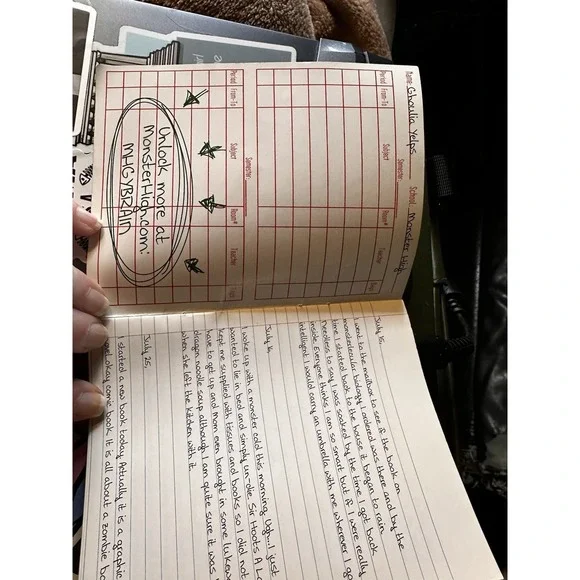 Name: Ghoulia Yelps School: Monster High
Semester:
Period From-To Subject Room# Teacher Days
Semester:
Period From-To Subject Room# Teacher Days
Unlock more at
MonsterHigh.com:
MHGYBRAIN
July 15,
I went to the mailbox to see if the book on
monsterlecular biology I ordered was there and by the
time I started back to the house it began to rain.
Needless to say I was soaked by the time I got back
inside. Everyone thinks I am so smart but if I were really
intelligent I would carry an umbrella with me wherever I go
July 16,
I woke up with a monster cold this morning. Ugh...I just
wanted to lie in bed and simply un-die. Sir Hoots A
kept me supplied with tissues and books so I did not
have to get up and mom even brought in some
dragon noodle soup although I am quite sure it was
when she left the kitchen with it.
July 25,
I started a new book today. Actually it is a graphic
okay comic book. It is all about a zombie